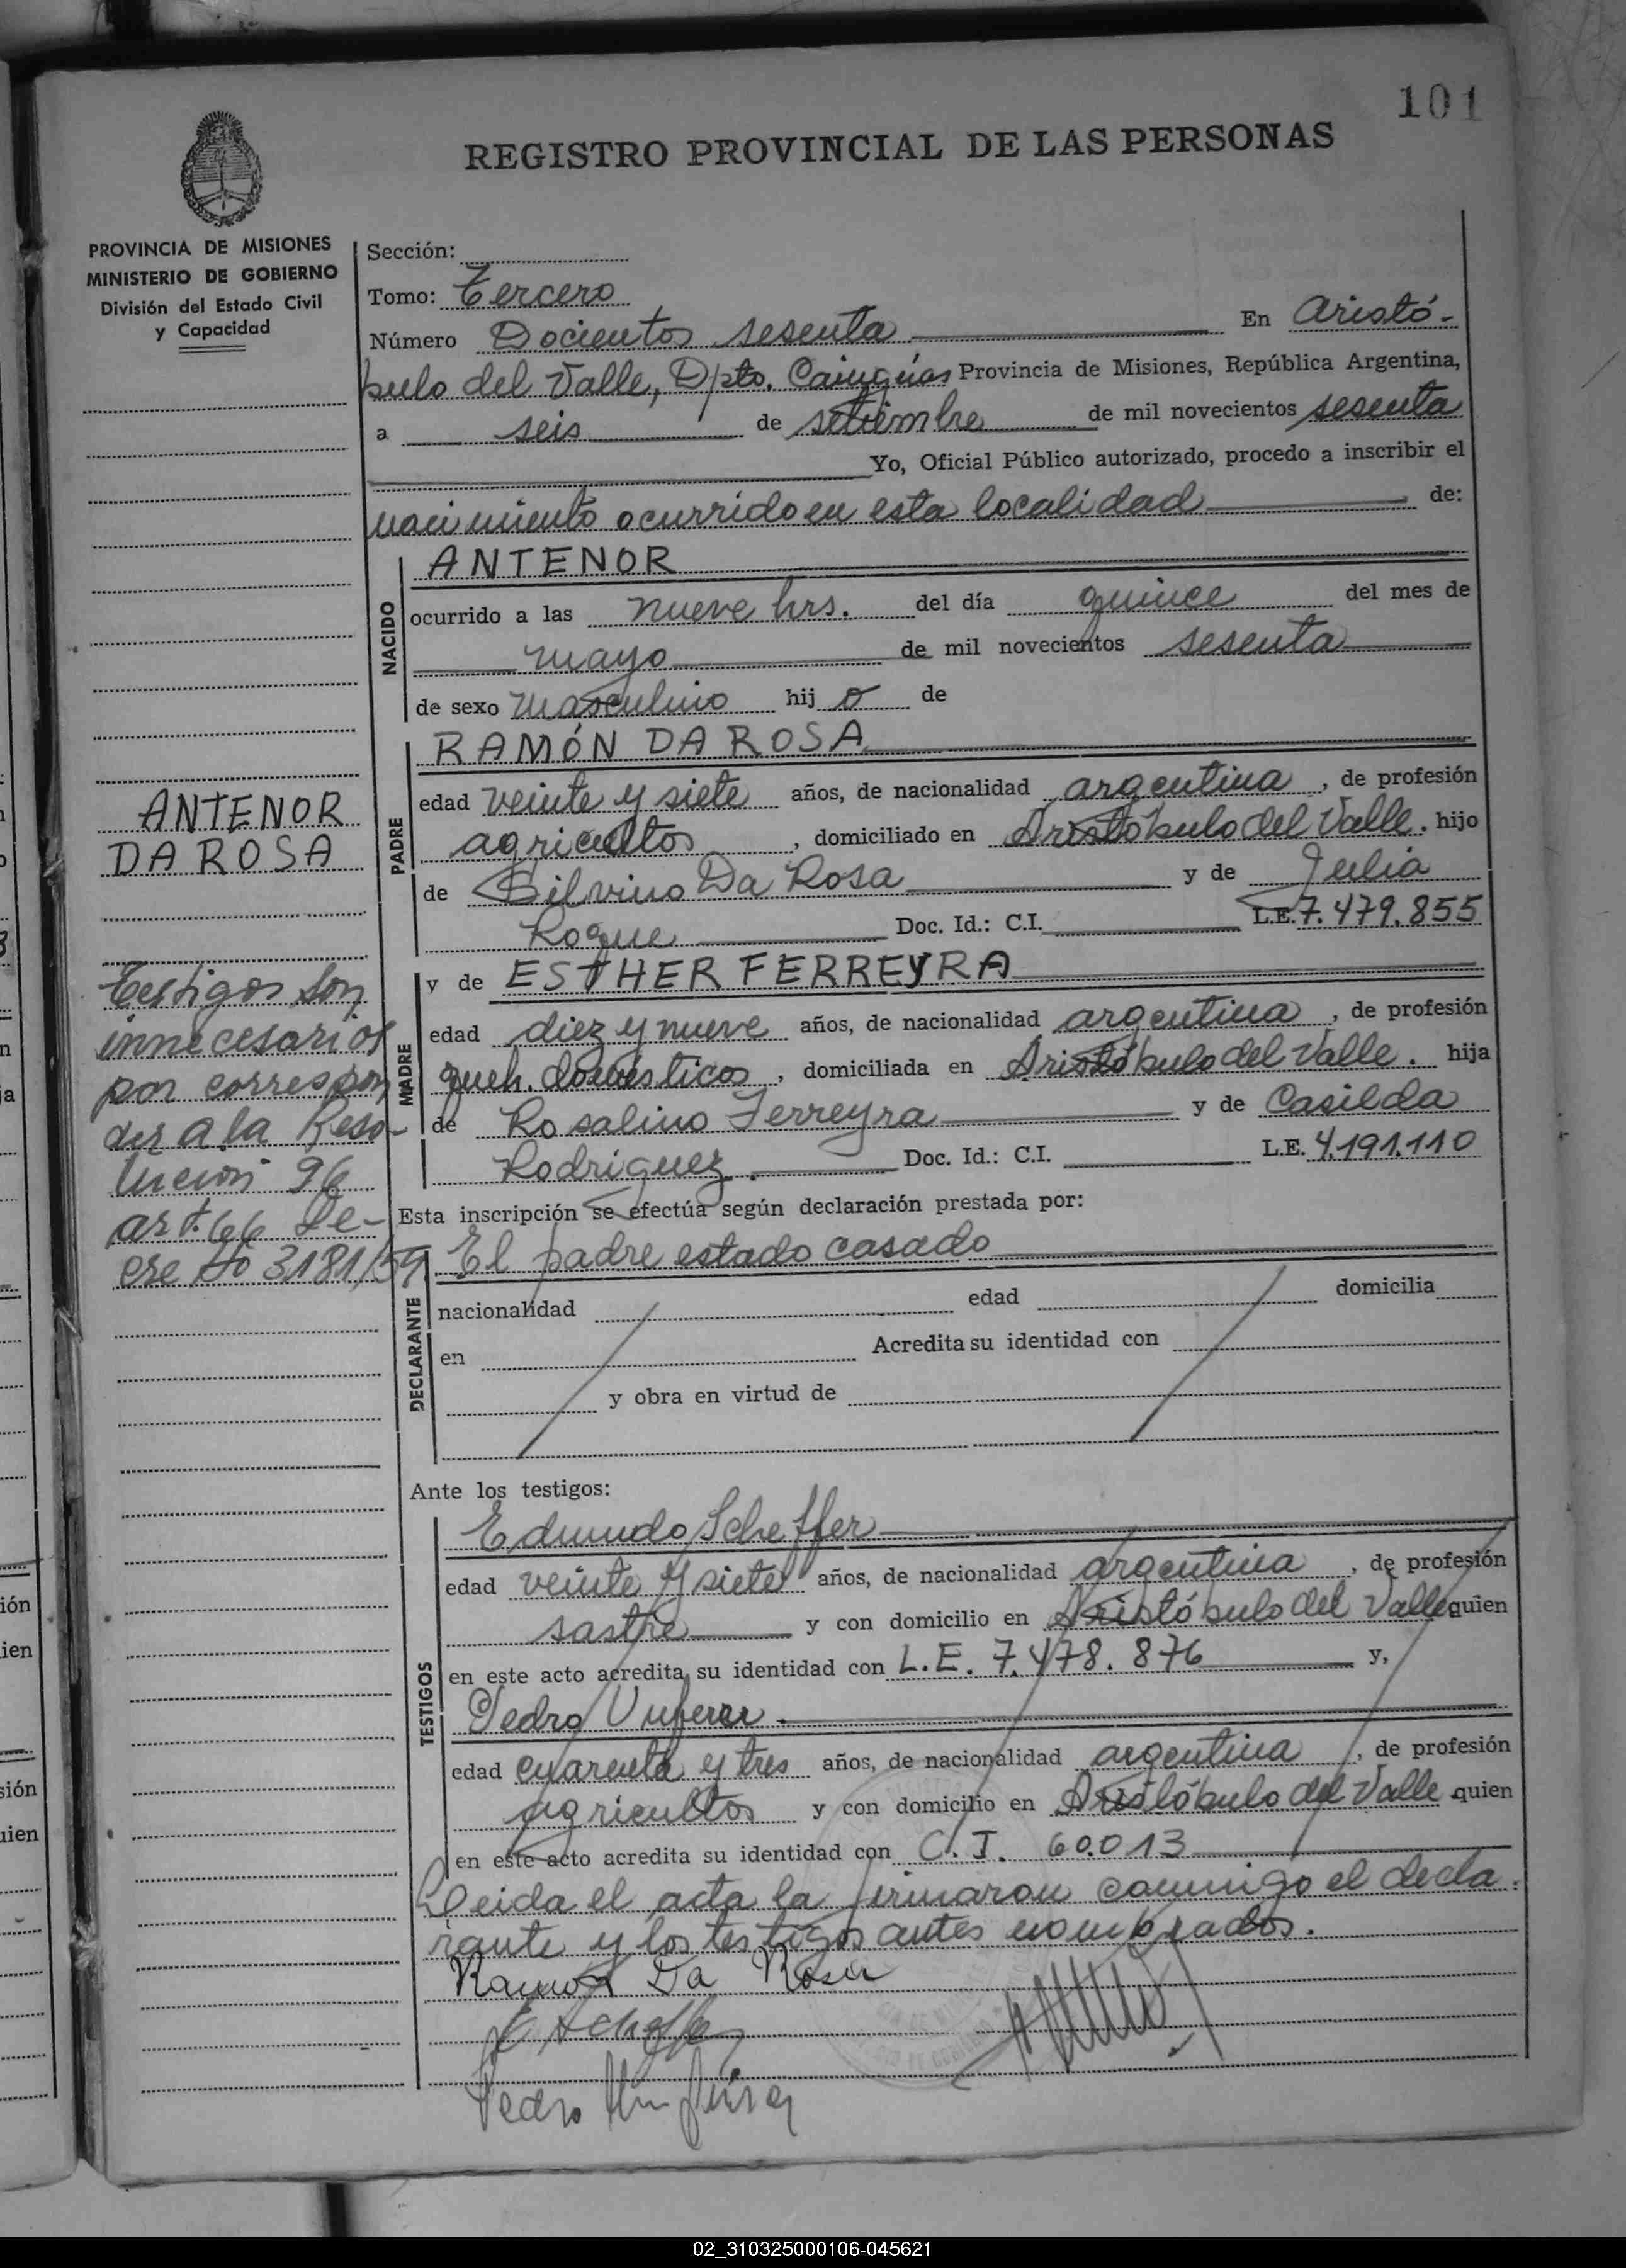 101
REGISTRO PROVINCIAL DE LAS PERSONAS
PROVINCIA DE MISIONES
MINISTERIO DE GOBIERNO
División del Estado Civil
y Capacidad
Sección:
Tomo: Tercero
Número Docientos sesenta En Aristó-
bulo del Valle, Dpto. Cainguás Provincia de Misiones, República Argentina,
a seis de setiembre de mil novecientos sesenta
Yo, Oficial Público autorizado, procedo a inscribir el
nacimiento ocurrido en esta localidad de:
NACIDO
ANTENOR
ocurrido a las nueve hrs. del día quince del mes de
mayo de mil novecientos sesenta
de sexo masculino hij o de
PADRE
RAMÓN DA ROSA
edad veinte y siete años, de nacionalidad argentina, de profesión
agricultor, domiciliado en Aristóbulo del Valle. hijo
de Silvino Da Rosa y de Julia
Roque Doc. Id.: C.I. L.E. 7.479.855
MADRE
y de ESTHER FERREYRA
edad diez y nueve años, de nacionalidad argentina, de profesión
queh. domésticos, domiciliada en Aristóbulo del Valle. hija
de Rosalino Ferreyra y de Casilda
Rodriguez. Doc. Id.: C.I. L.E. 4.191.110
Esta inscripción se efectúa según declaración prestada por:
DECLARANTE
El padre estado casado
nacionalidad edad domicilia
en Acredita su identidad con
y obra en virtud de
Ante los testigos:
TESTIGOS
Edmundo Scheffer
edad veinte y siete años, de nacionalidad argentina, de profesión
sastre y con domicilio en Aristóbulo del Valle quien
en este acto acredita su identidad con L.E. 7.478.876 y,
Pedro
edad cuarenta y tres años, de nacionalidad argentina, de profesión
agricultor y con domicilio en Aristóbulo del Valle quien
en este acto acredita su identidad con C.I. 60.013
Leida el acta la firmaron conmigo el decla-
rante y los testigos antes nombrados.
Ramon Da Rosa
Pedro
ANTENOR
DA ROSA
Testigos son
innecesarios
por correspon
der a la Reso-
lucion 96
art. 66 De-
cre to 3181/59
02_310325000106-045621